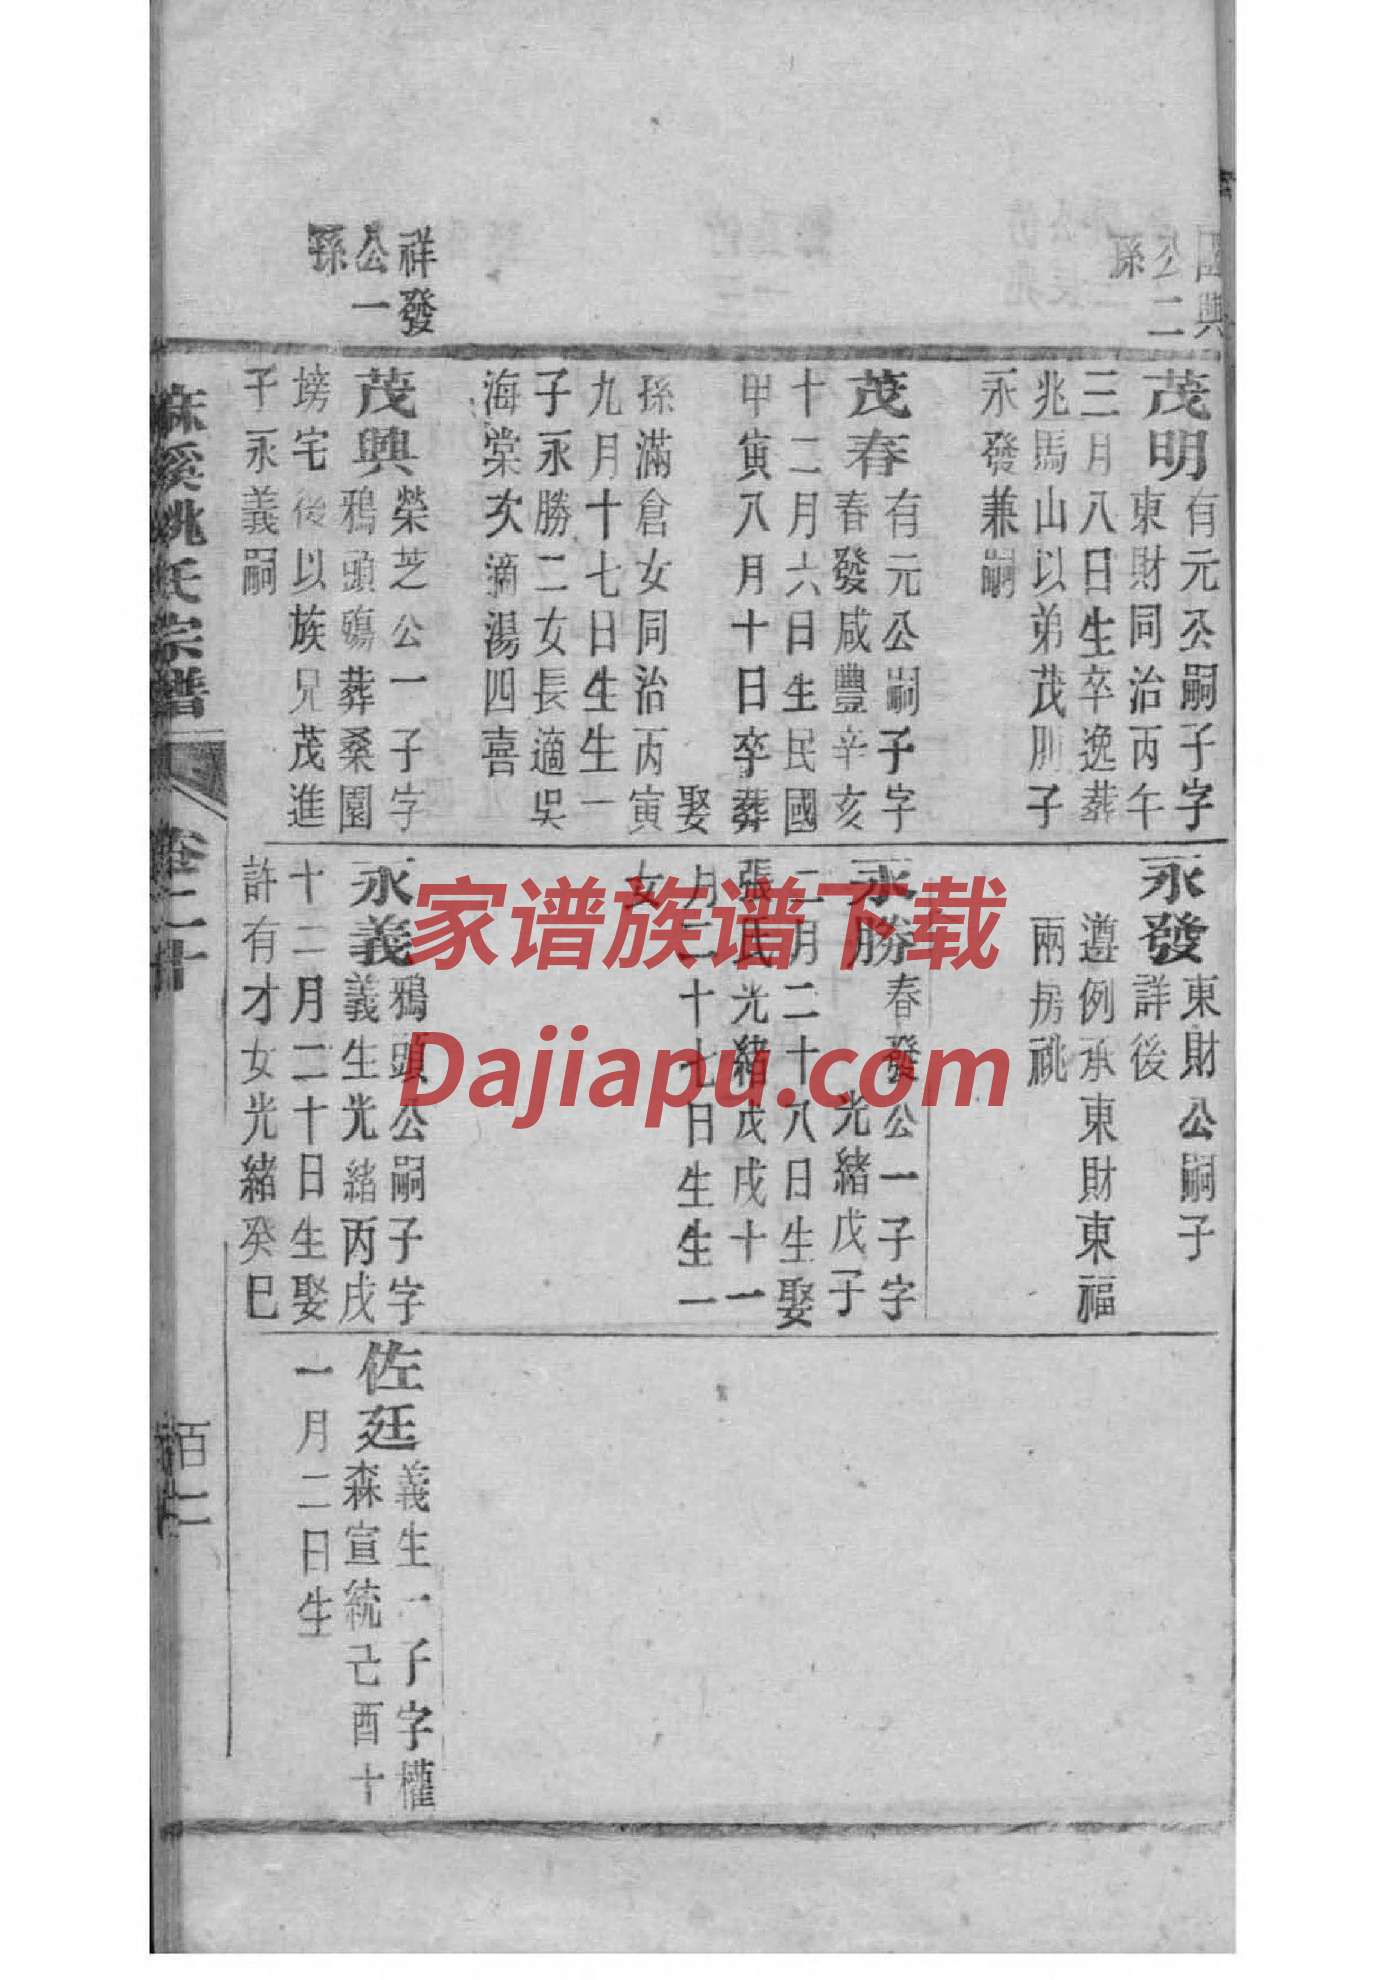 國興
公二
孫
茂明
有元公嗣子字
東財同治丙午
三月八日生卒逸葬
兆馬山以弟茂則子
永發兼嗣
茂春
有元公嗣子字
春發咸豐辛亥
十二月六日生民國
甲寅八月十日卒葬
娶
孫滿倉女同治丙寅
九月十七日生生一
子永勝二女長適吳
海棠次適湯四喜
祥發
公一
孫
茂興
榮芝公一子字
鴉頭殤葬桑園
塝宅後以族兄茂進
子永義嗣
永發
東財公嗣子
詳後
遵例承東財東福
兩房祧
永勝
春發公一子字
光緒戊子
二月二十八日生娶
張氏光緒戊戌十一
月二十七日生生一
女
永義
鴉頭公嗣子字
義生光緒丙戌
十二月二十日生娶
許有才女光緒癸巳
佐廷
義生一子字權
森宣統己酉十
一月二日生
麻溪姚氏宗譜
卷二十
家谱族谱下载
Dajiapu.com